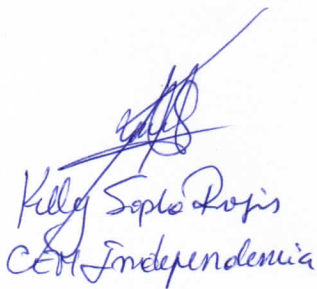 Kelly Soplá Rojas
CEM Independencia